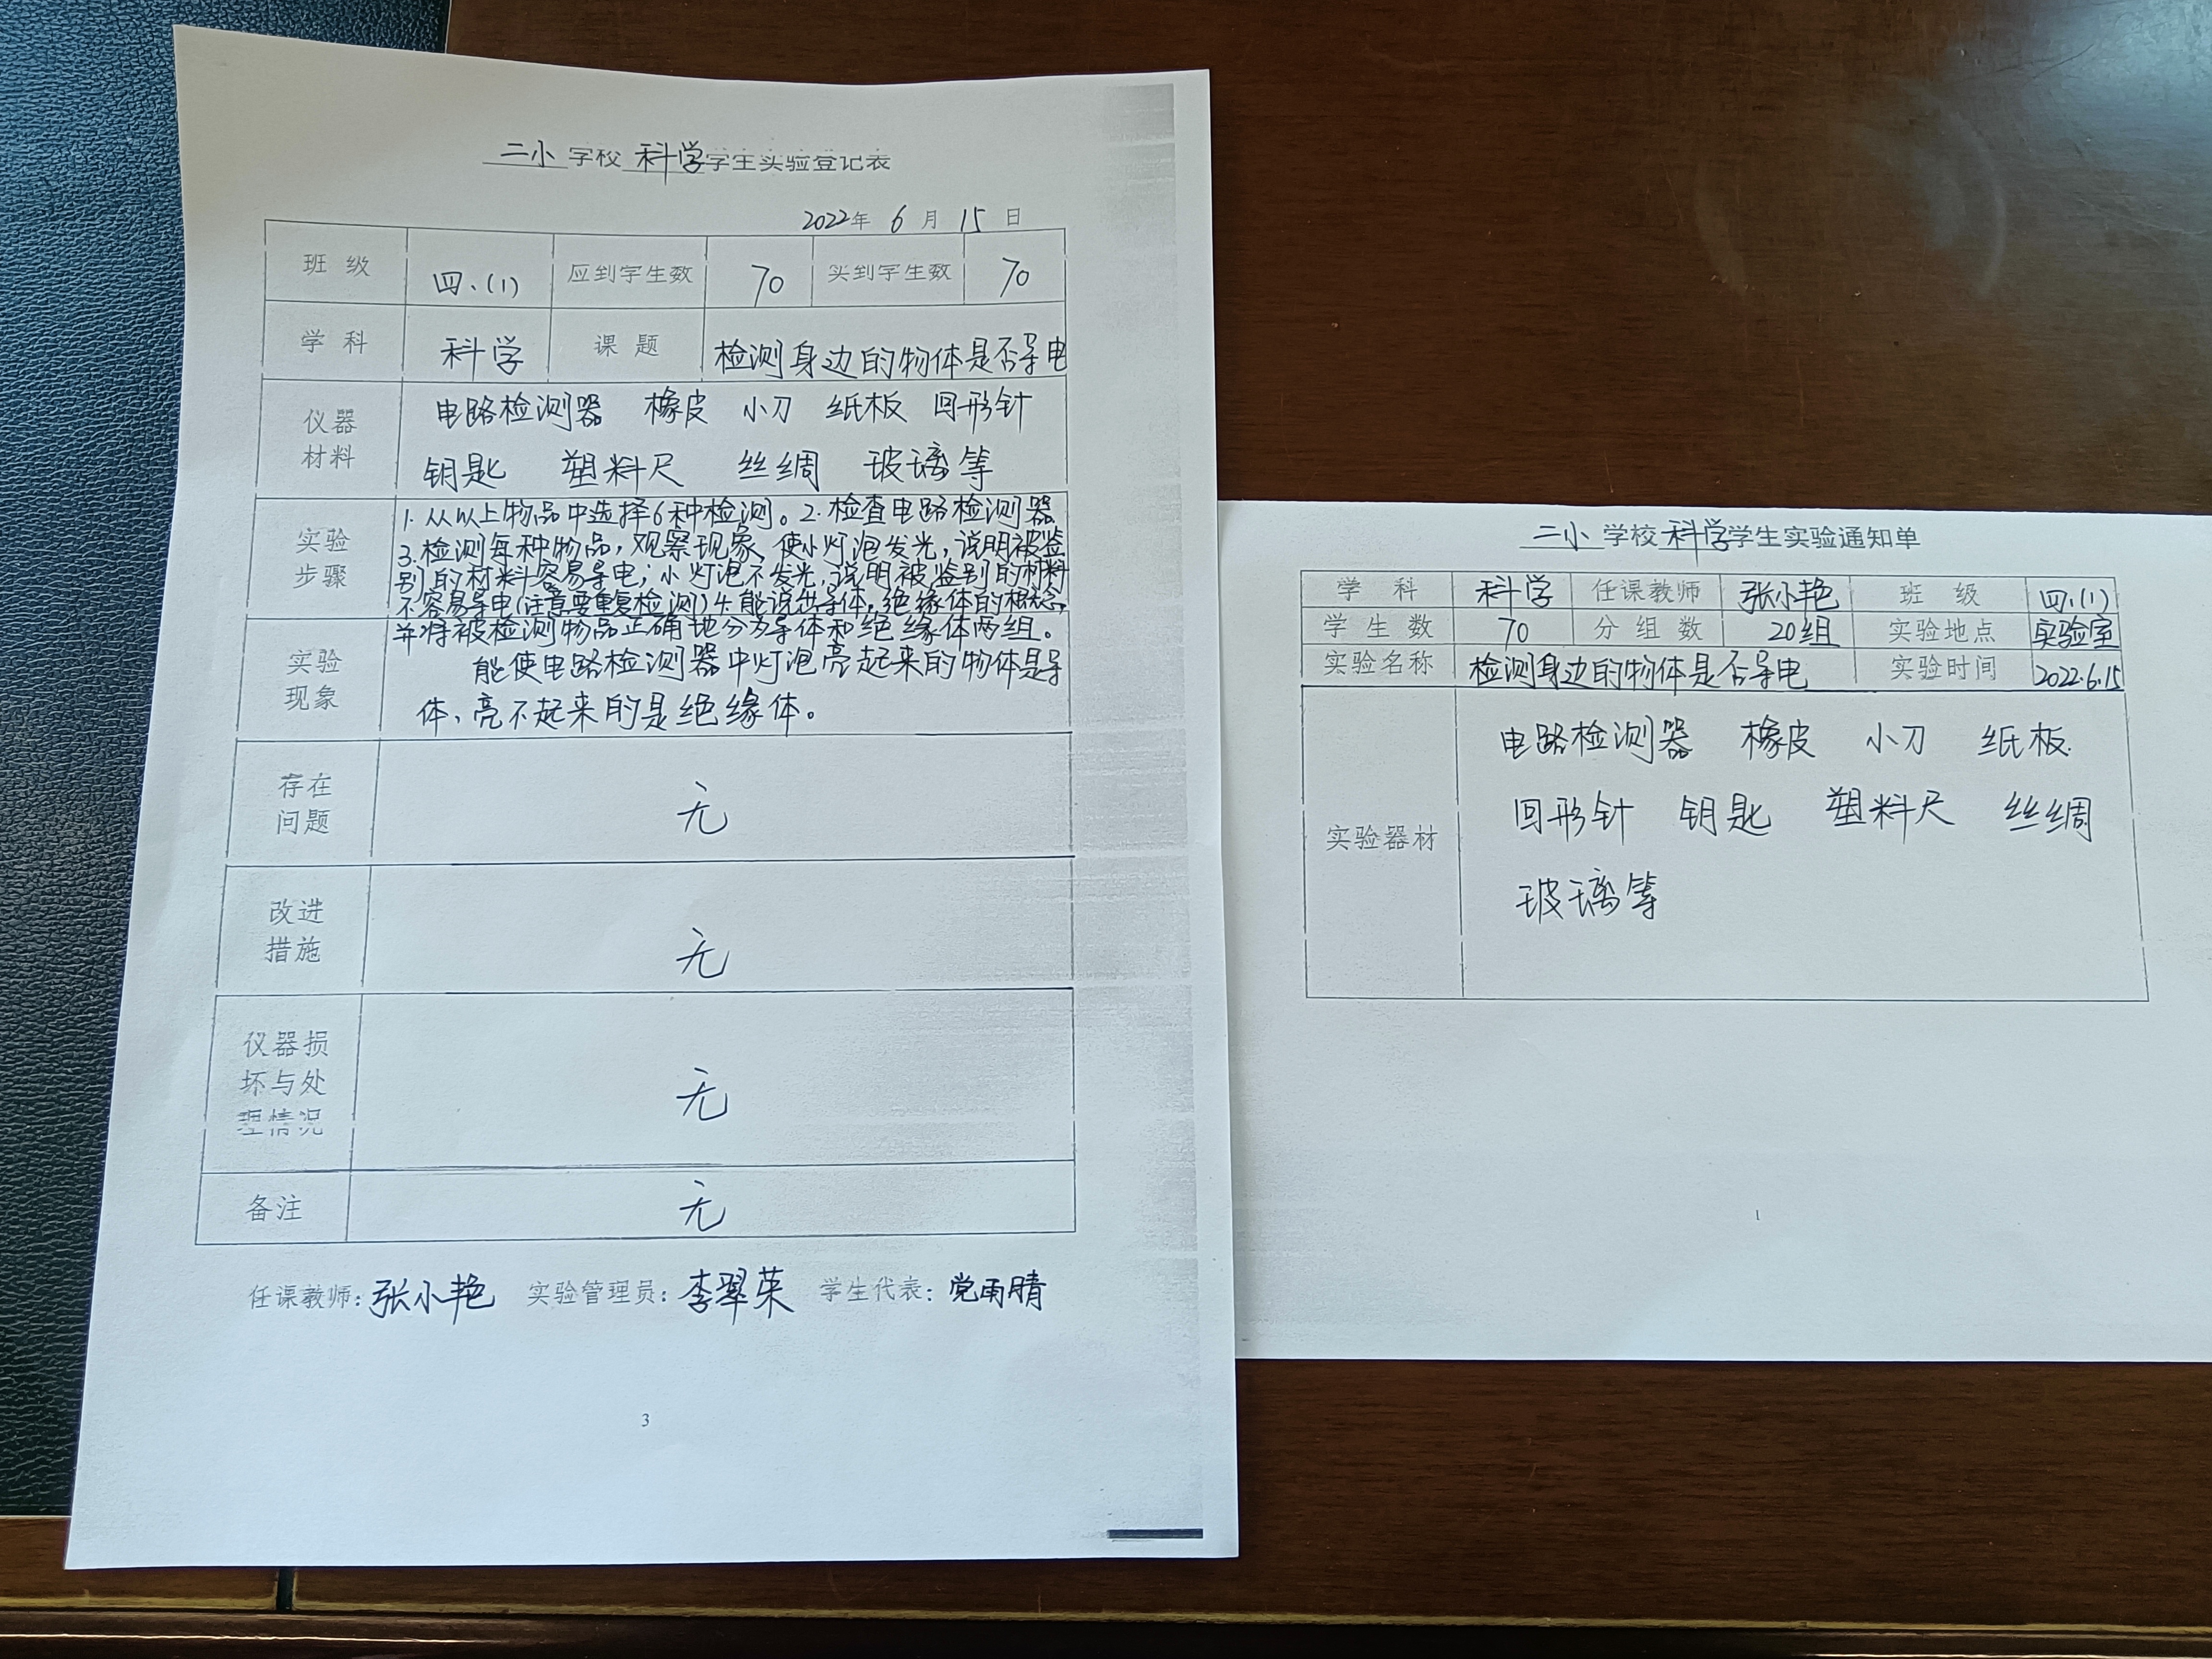 二小学校科学学生实验登记表
2022年 6月 15日
班级 四.(1) 应到学生数 70 实到学生数 70
学科 科学 课题 检测身边的物体是否导电
仪器材料 电路检测器 橡皮 小刀 纸板 回形针
钥匙 塑料尺 丝绸 玻璃等
实验步骤 1.从以上物品中选择6种检测。2.检查电路检测器
3.检测每种物品,观察现象、使小灯泡发光,说明被鉴
别的材料容易导电;小灯泡不发光,说明被鉴别的材料
不容易导电(注意要重复检测)4.能说出导体,绝缘体的概念,
并将被检测物品正确地分为导体和绝缘体两组。
实验现象 能使电路检测器中灯泡亮起来的物体是导
体、亮不起来的是绝缘体。
存在问题 无
改进措施 无
仪器损坏与处理情况 无
备注 无
任课教师:张小艳 实验管理员:李翠荣 学生代表:党雨晴
3
二小学校科学学生实验通知单
学科 科学 任课教师 张小艳 班级 四.(1)
学生数 70 分组数 20组 实验地点 实验室
实验名称 检测身边的物体是否导电 实验时间 2022.6.15
实验器材 电路检测器 橡皮 小刀 纸板
回形针 钥匙 塑料尺 丝绸
玻璃等
1